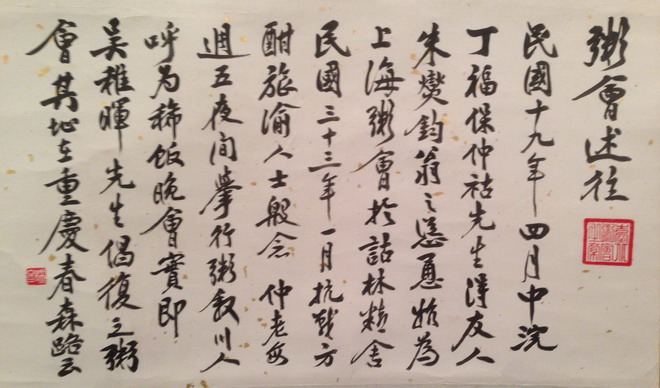 粥會述往
民國十九年四月中浣
丁福保仲祜先生得友人
朱燮鈞翁之慫恿始為
上海粥會於詁林精舍
民國三十三年一月抗戰方
酣旅渝人士般念仲老每
週五夜間舉行粥敘川人
呼為稀飯晚會實即
吳稚暉先生倡復之粥
會其地在重慶春森路云